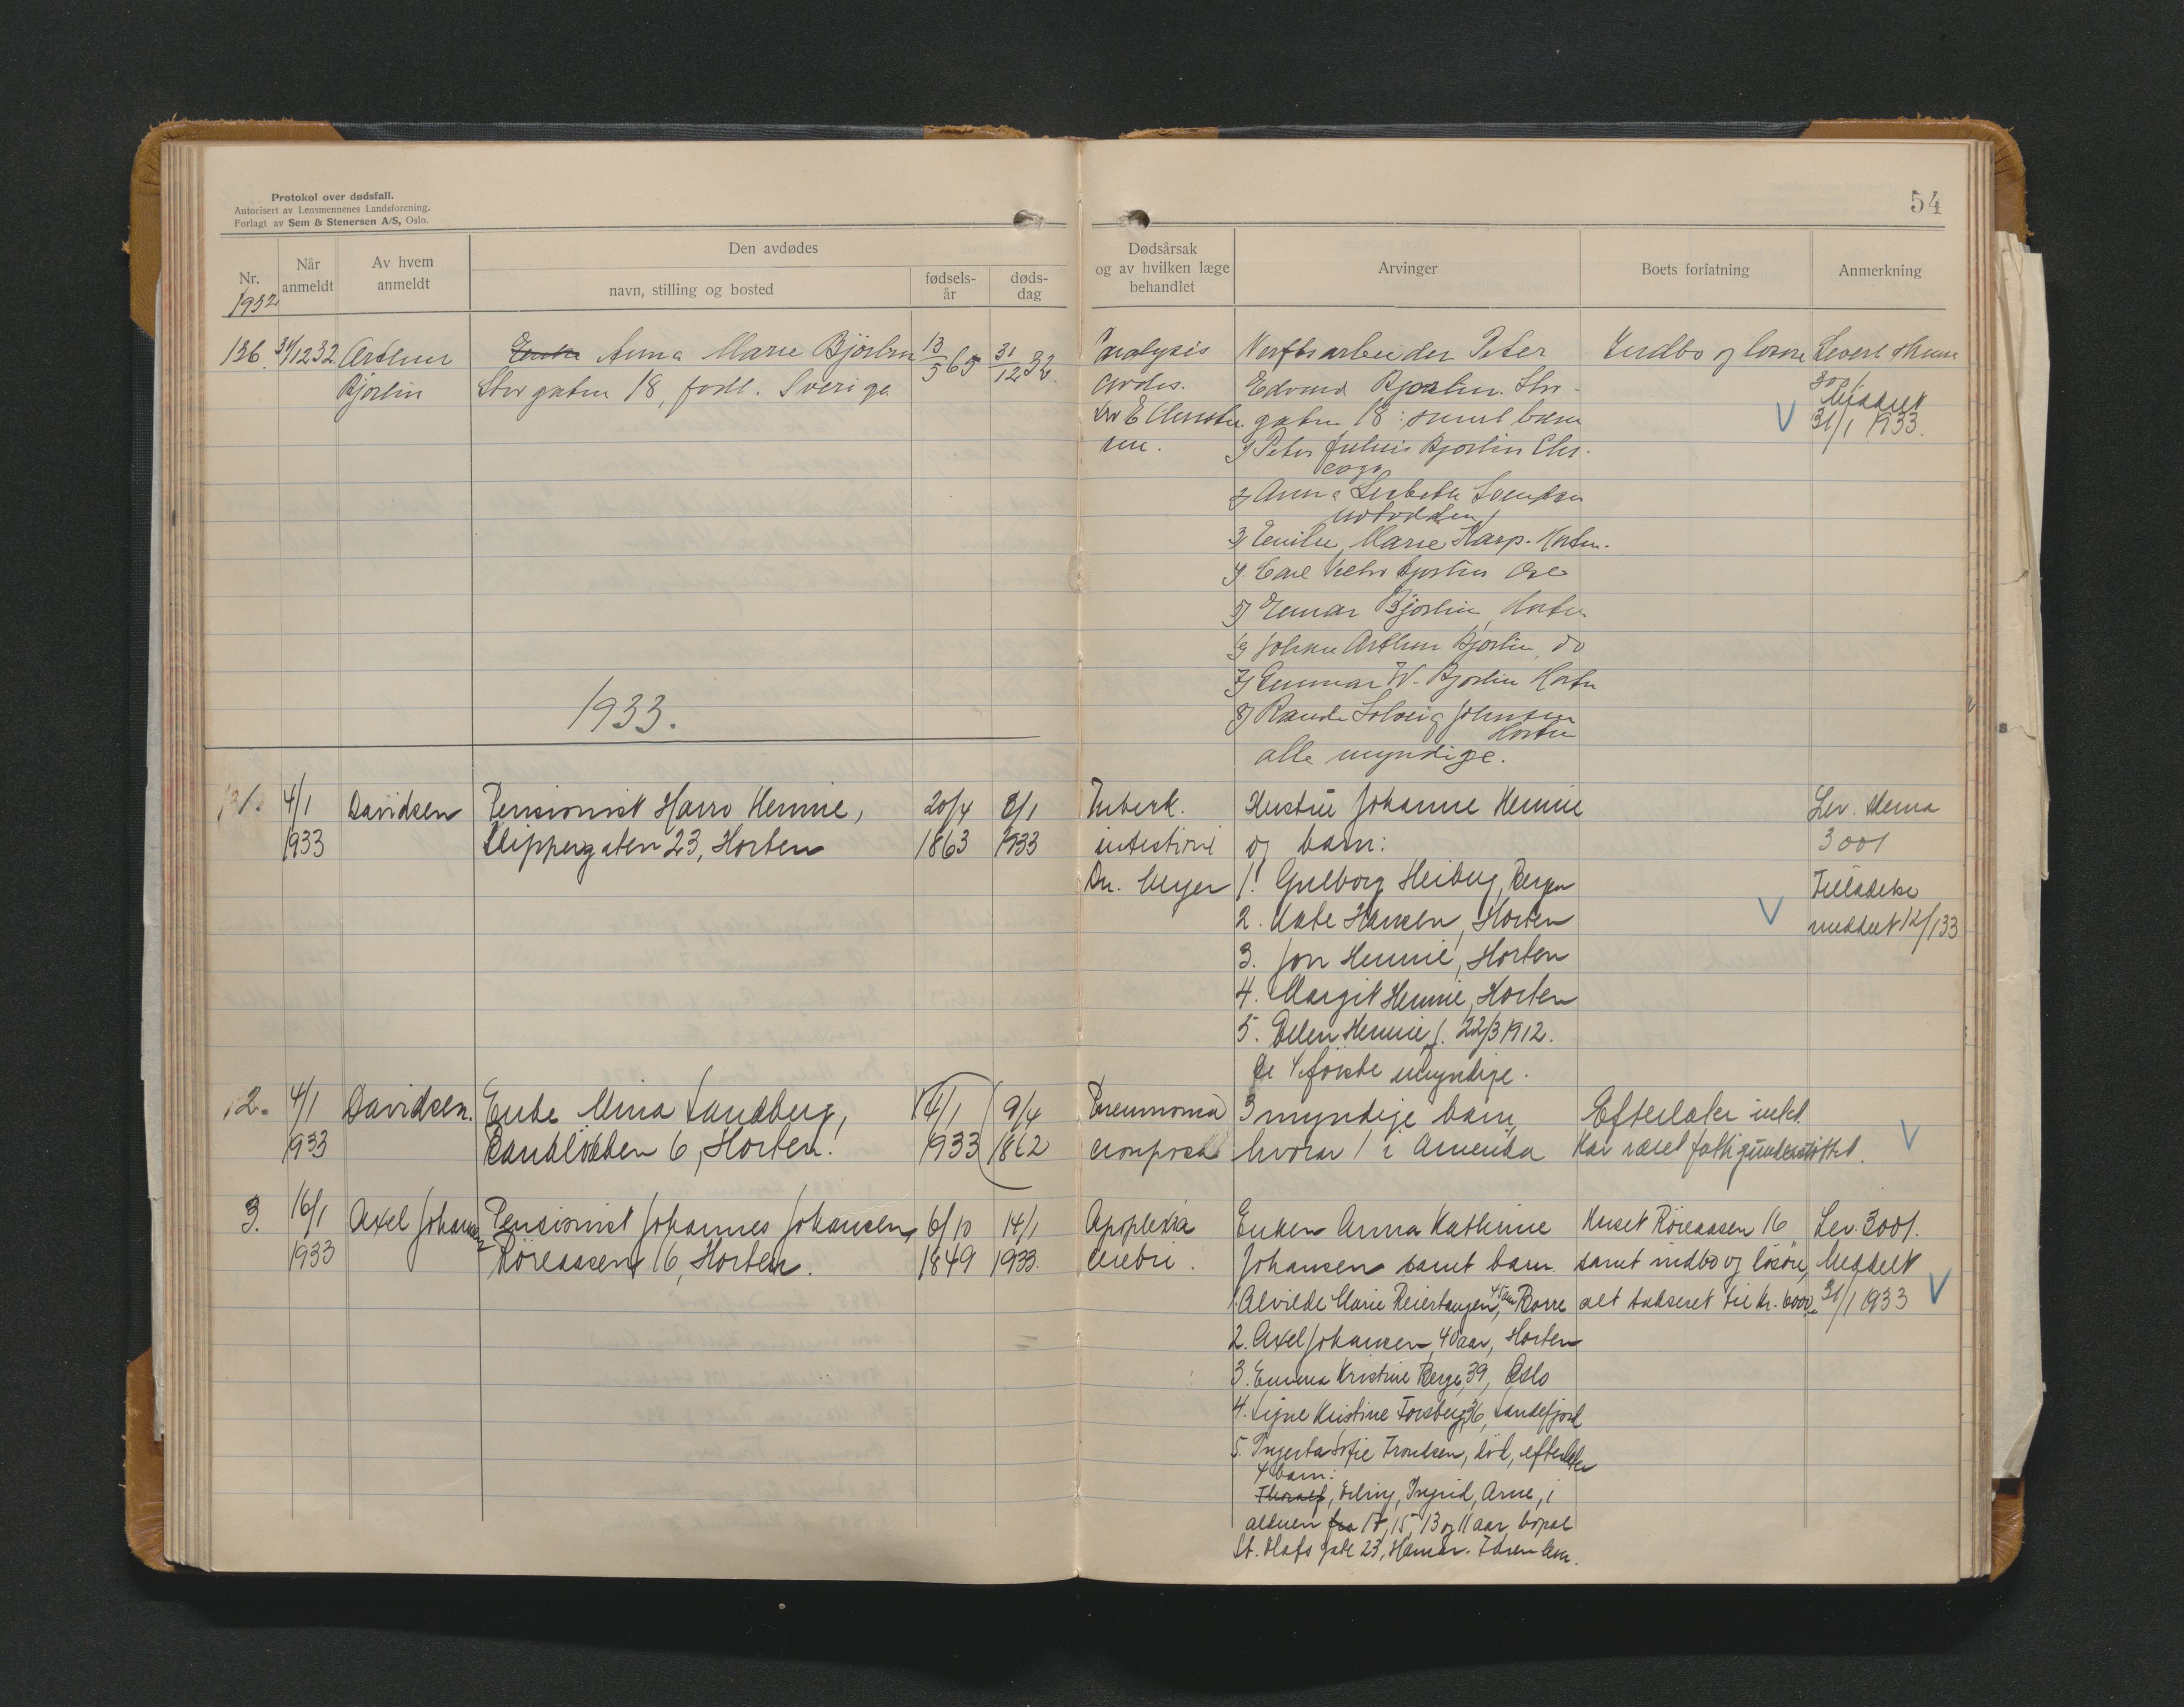 Protokol over dødsfall.
Autorisert av Lensmennenes Landsforening.
Forlagt av Sem & Stenersen A/S, Oslo.
Nr.
1932
Når
anmeldt
Av hvem
anmeldt
Den avdødes
navn, stilling og bosted
fødsels-
år
døds-
dag
136. 31/12 32 Arthur
Bjørlin
Enke Anna Marie Bjørlin
Storgaten 18, født. Sverige
13/5 65
31/12 32
1933.
1. 4/1
1933
Davidsen
Pensionist Harro Hennie,
Skippergaten 23, Horten
20/4
1863
2/1
1933
2. 4/1
1933
Davidsen.
Enke Mina Sandberg,
6, Horten.
4/1
1933
9/4
1862
3. 16/1
1933
Axel Johansen
Pensionist Johannes Johansen,
Röreaasen 16, Horten.
6/10
1849
14/1
1933.
54
Dødsårsak
og av hvilken læge
behandlet
Arvinger
Boets forfatning
Anmerkning
Paralysis
cordis.
Verftsarbeider Peter
Edvard Bjørlin. Stor-
gaten 18 : samt barn
1) Peter Julius Bjørlin Chi-
cago
2) Anna Lisbeth
Notodden
3) Emilie Marie Karp. Horten.
4) Carl Bjørlin Oslo
5) Einar Bjørlin, Horten
6) Johan Arthur Bjørlin, do
7) Gunnar W. Bjørlin Horten
8) Solveig Johnsen
Horten
alle myndige.
Indbo og løsøre
Levert skema
3001
Meddelt
31/1 1933.
Tuberk.
intestini
Dr. Meyer
Hustru Johanne Hennie
og barn:
1. Gulborg Heiberg, Bergen
2. Kate Hansen, Horten
3. Jon Hennie, Horten
4. Margit Hennie, Horten
5. Ellen Hennie f. 22/3 1912.
de 4 første myndige.
Lev. skema
3001
Tilladelse
meddelt 12/1 33
Pneumonia
crouposa
3 myndige barn,
hvorav 1 i Amerika
Efterlater intet.
Har været fattigunderstøttet.
Apoplexia
cerebri.
Enken Anna Kathrine
Johansen samt barn.
1. Alvilde Marie Reiertangen, 45 aar, Borre
2. Axel Johansen, 40 aar, Horten
3. Emma Kristine Berge, 39, Oslo
4. Signe Kristine Forsberg, 36, Sandefjord
5. Ingerta Sofie Trondsen, död, efterlater
4 barn:
Thoralf, Erling, Ingrid, Arne, i
alderen fra 17, 15, 13 og 11 aar, bopæl
St. Olafs gate 23, Hamar.
Huset Röreaasen 16
samt indbo og løsøre,
alt takseret til kr. 6000,-
Lev. 3001.
Meddelt
31/1 1933